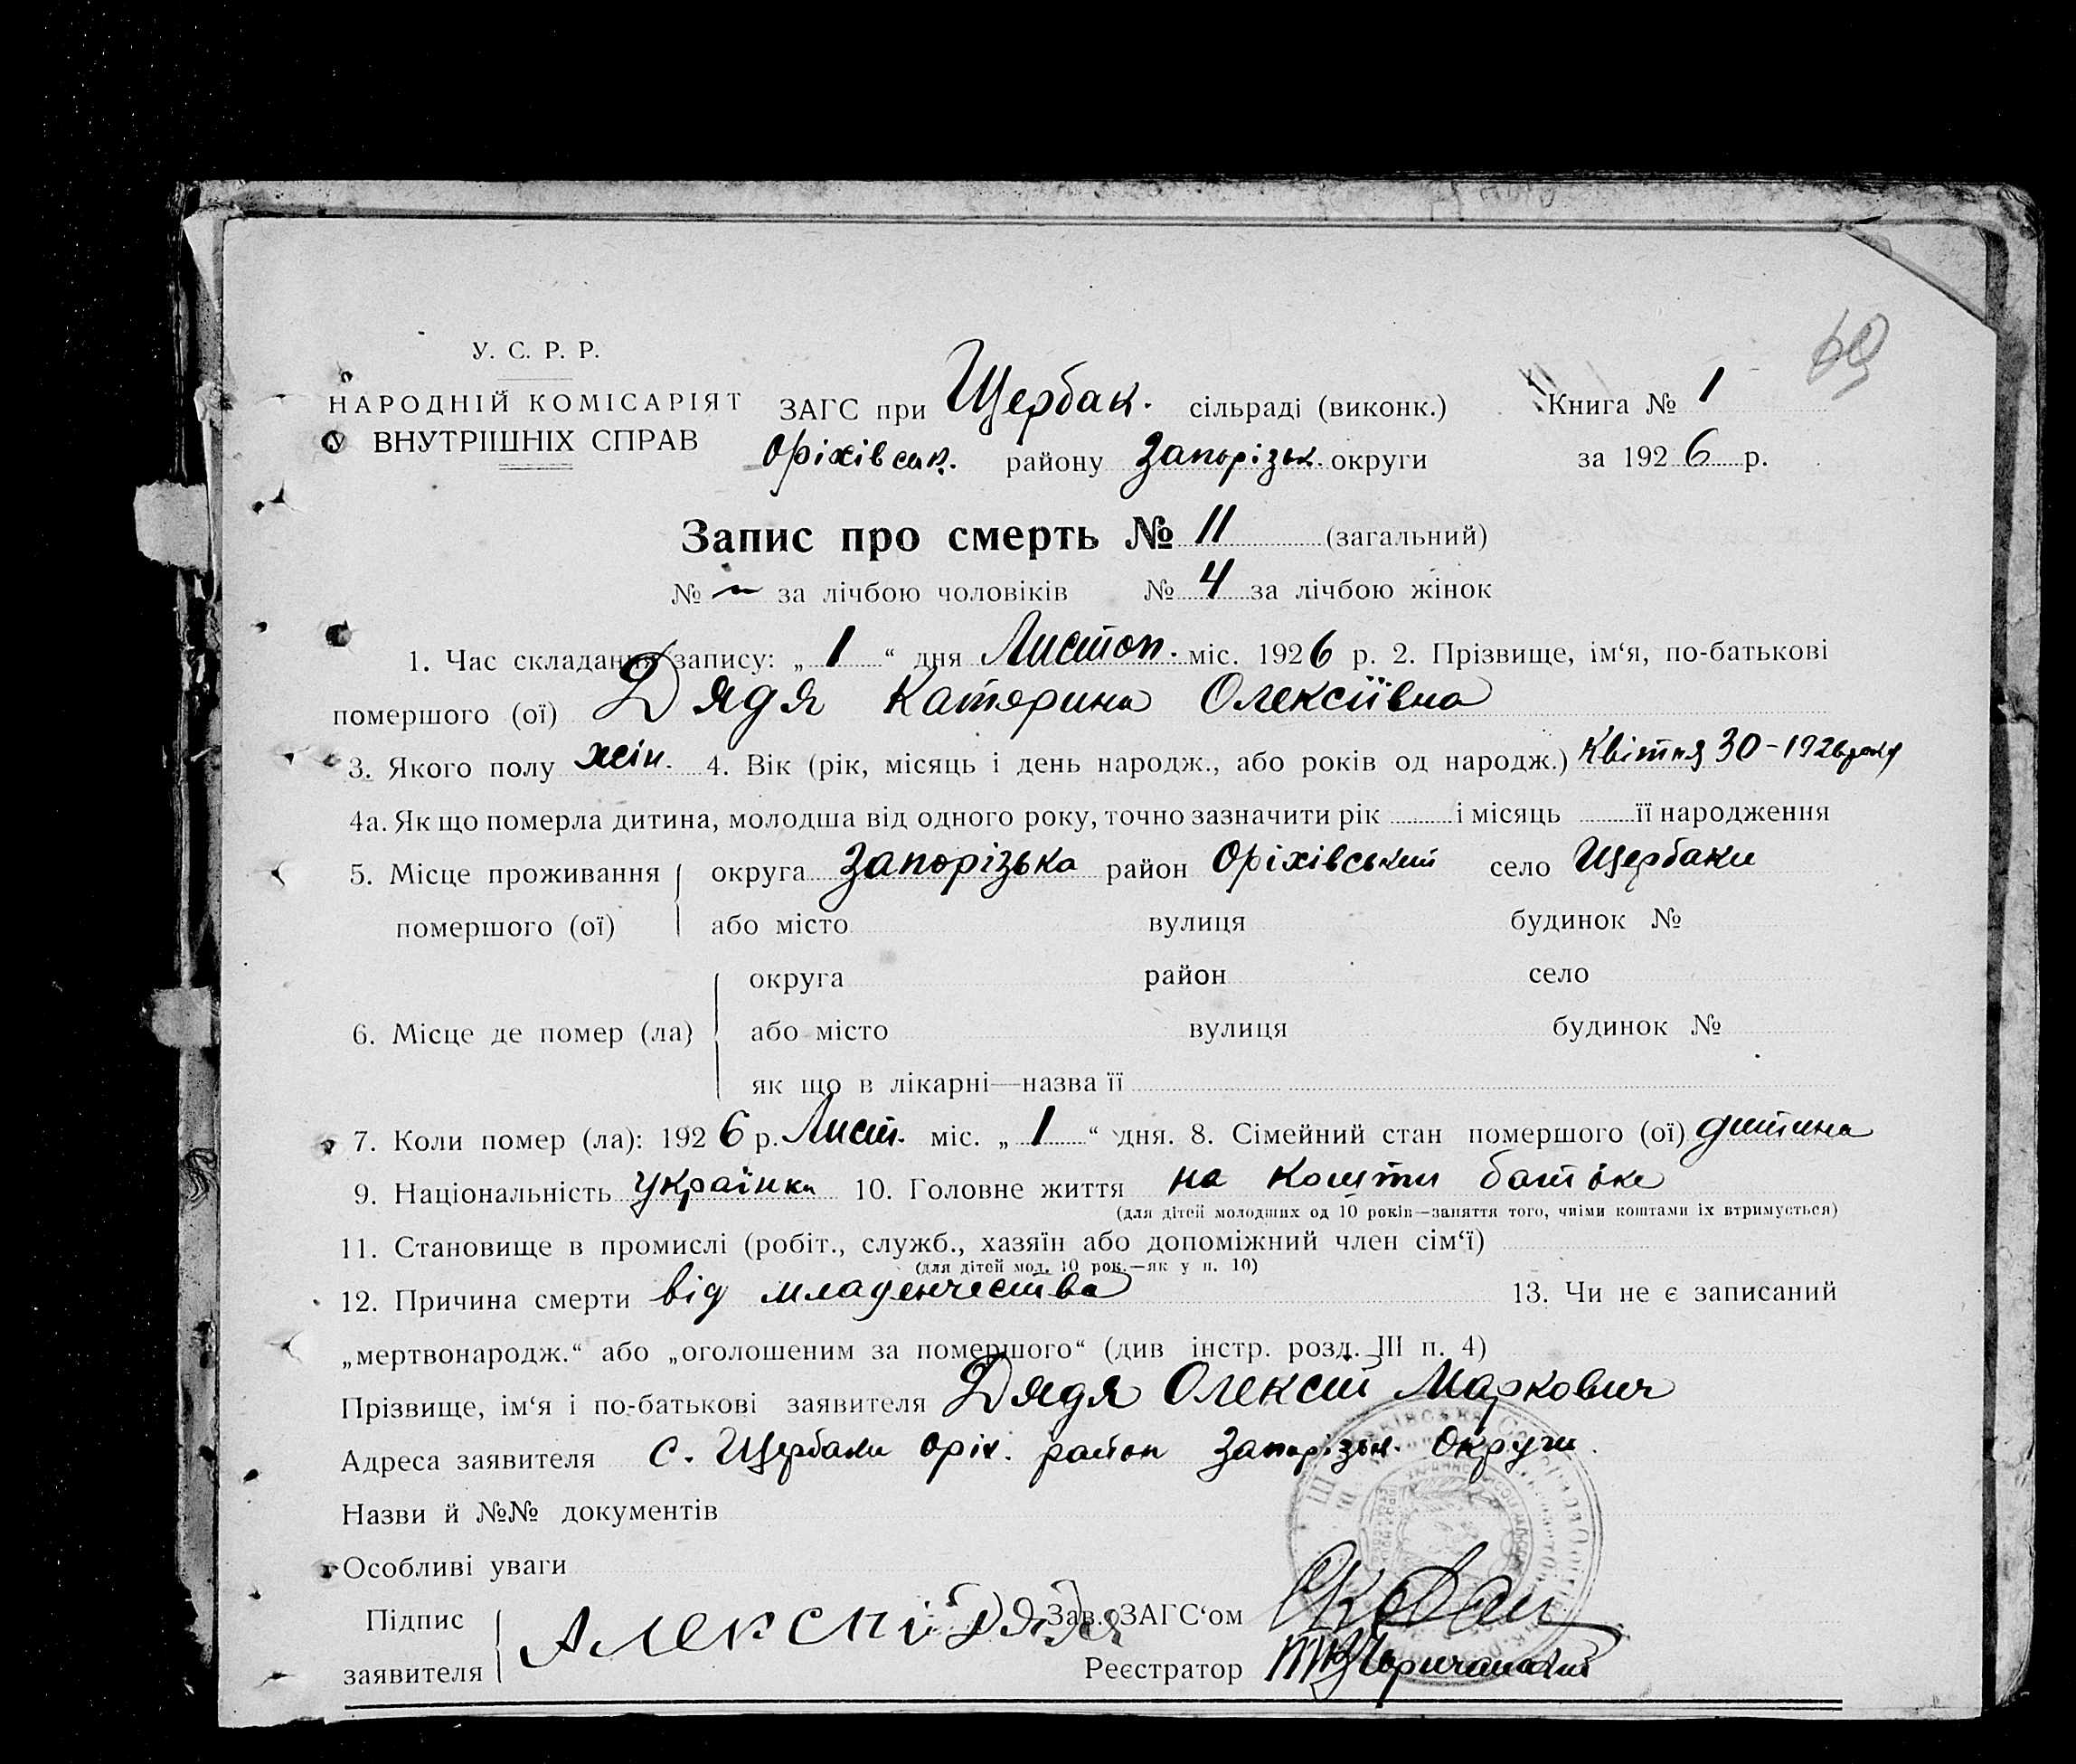 У. С. Р. Р.
НАРОДНІЙ КОМІСАРІЯТ
ВНУТРІШНІХ СПРАВ
ЗАГС при Щербак. сільраді (виконк.)
Оріхівськ. району Запорізьк. округи
Книга № 1
за 1926 р.
69
Запис про смерть № 11 (загальний)
№ — за лічбою чоловіків № 4 за лічбою жінок
1. Час складання запису: „1“ дня Листоп. міс. 1926 р. 2. Прізвище, ім‘я, по-батькові
помершого (ої) Дядя Катерина Олексіївна
3. Якого полу жін. 4. Вік (рік, місяць і день народж., або років од народж.) Квітня 30 - 1926 року
4а. Як що померла дитина, молодша від одного року, точно зазначити рік і місяць її народження
5. Місце проживання округа Запорізька район Оріхівський село Щербаки
помершого (ої) або місто вулиця будинок №
округа район село
6. Місце де помер (ла) або місто вулиця будинок №
як що в лікарні—назва її
7. Коли помер (ла): 1926 р. Лист. міс. „1“ дня. 8. Сімейний стан помершого (ої) дитина
9. Національність українка 10. Головне життя на кошти батьке
(для дітей молодших од 10 років—заняття того, чиїми коштами їх втримується)
11. Становище в промислі (робіт., служб., хазяїн або допоміжний член сім‘ї)
(для дітей мол. 10 рок.—як у п. 10)
12. Причина смерти від младенчества 13. Чи не є записаний
„мертвонародж.“ або „оголошеним за померщого“ (див інстр. розд. III п. 4)
Прізвище, ім‘я і по-батькові заявителя Дядя Олексій Маркович
Адреса заявителя с. Щербаки Оріх. район Запорізьк. Округи
Назви й №№ документів
Особливі уваги
Підпис
заявителя Алексій Дядя
Зав. ЗАГС‘ом
Реєстратор